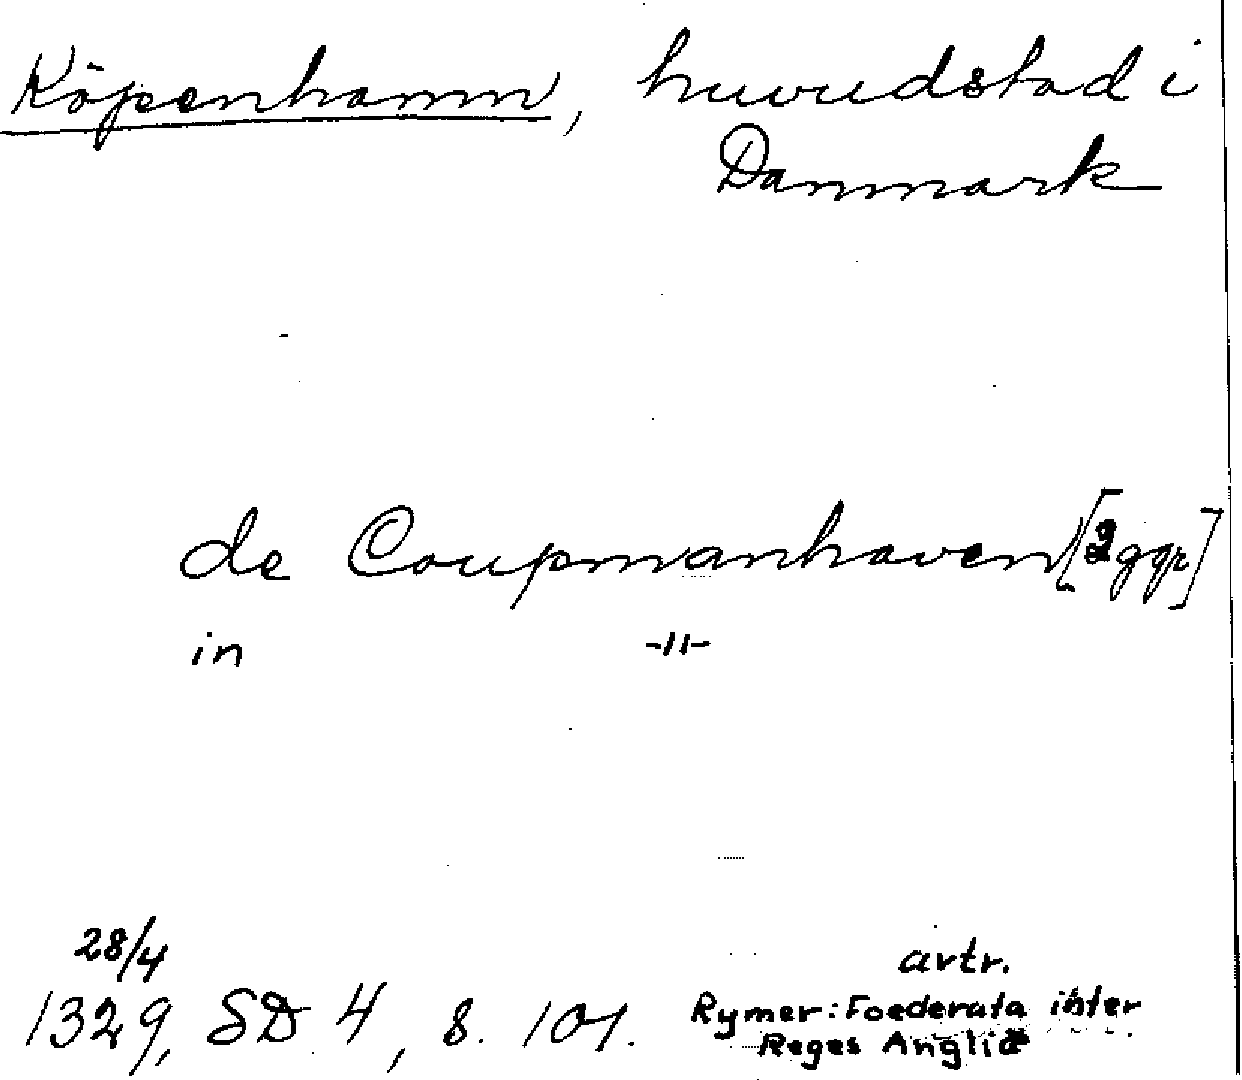 Köpenhamn, huvudstad i
Danmark
de Coupmanhaven [2 ggr]
in -11-
28/4
1329, SD 4, s. 101.
avtr.
Rymer: Foederata inter
Reges Angliæ